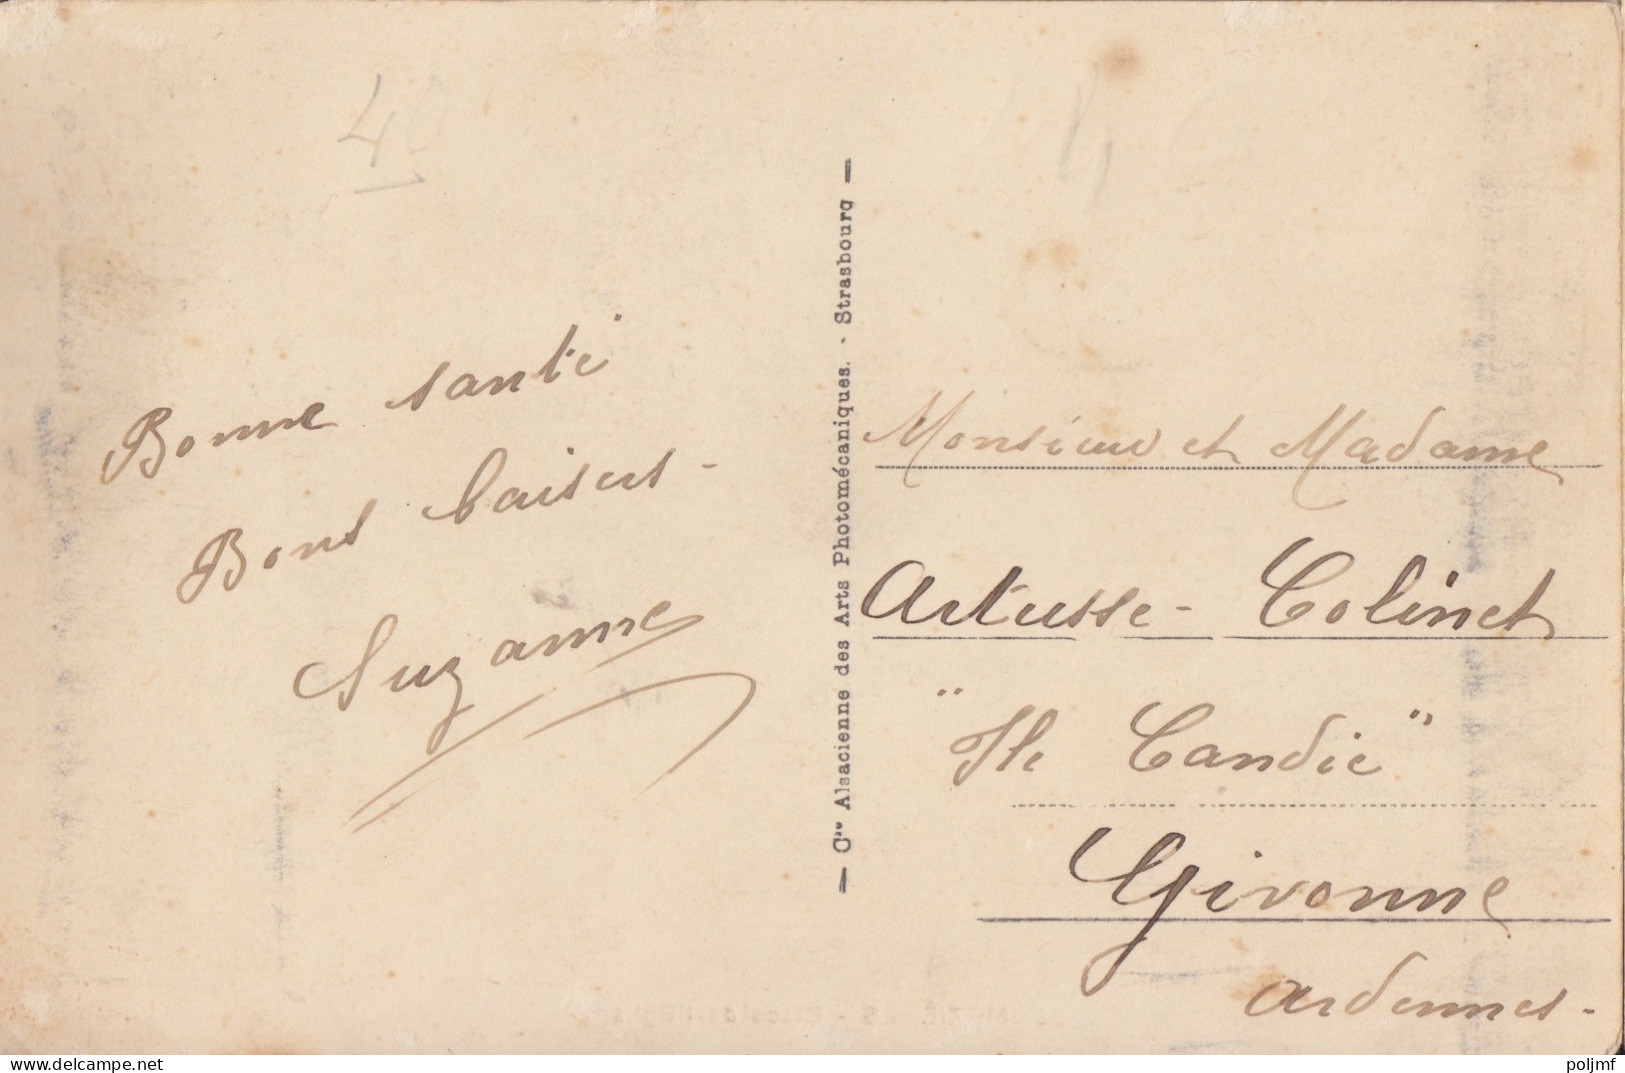 40
Bonne santé
Bons baisers -
Suzanne
— Cie Alsacienne des Arts Photomécaniques. - Strasbourg —
Monsieur et Madame
Artusse - Colinet
"Ile Candie"
Givonne
Ardennes -
poljmf